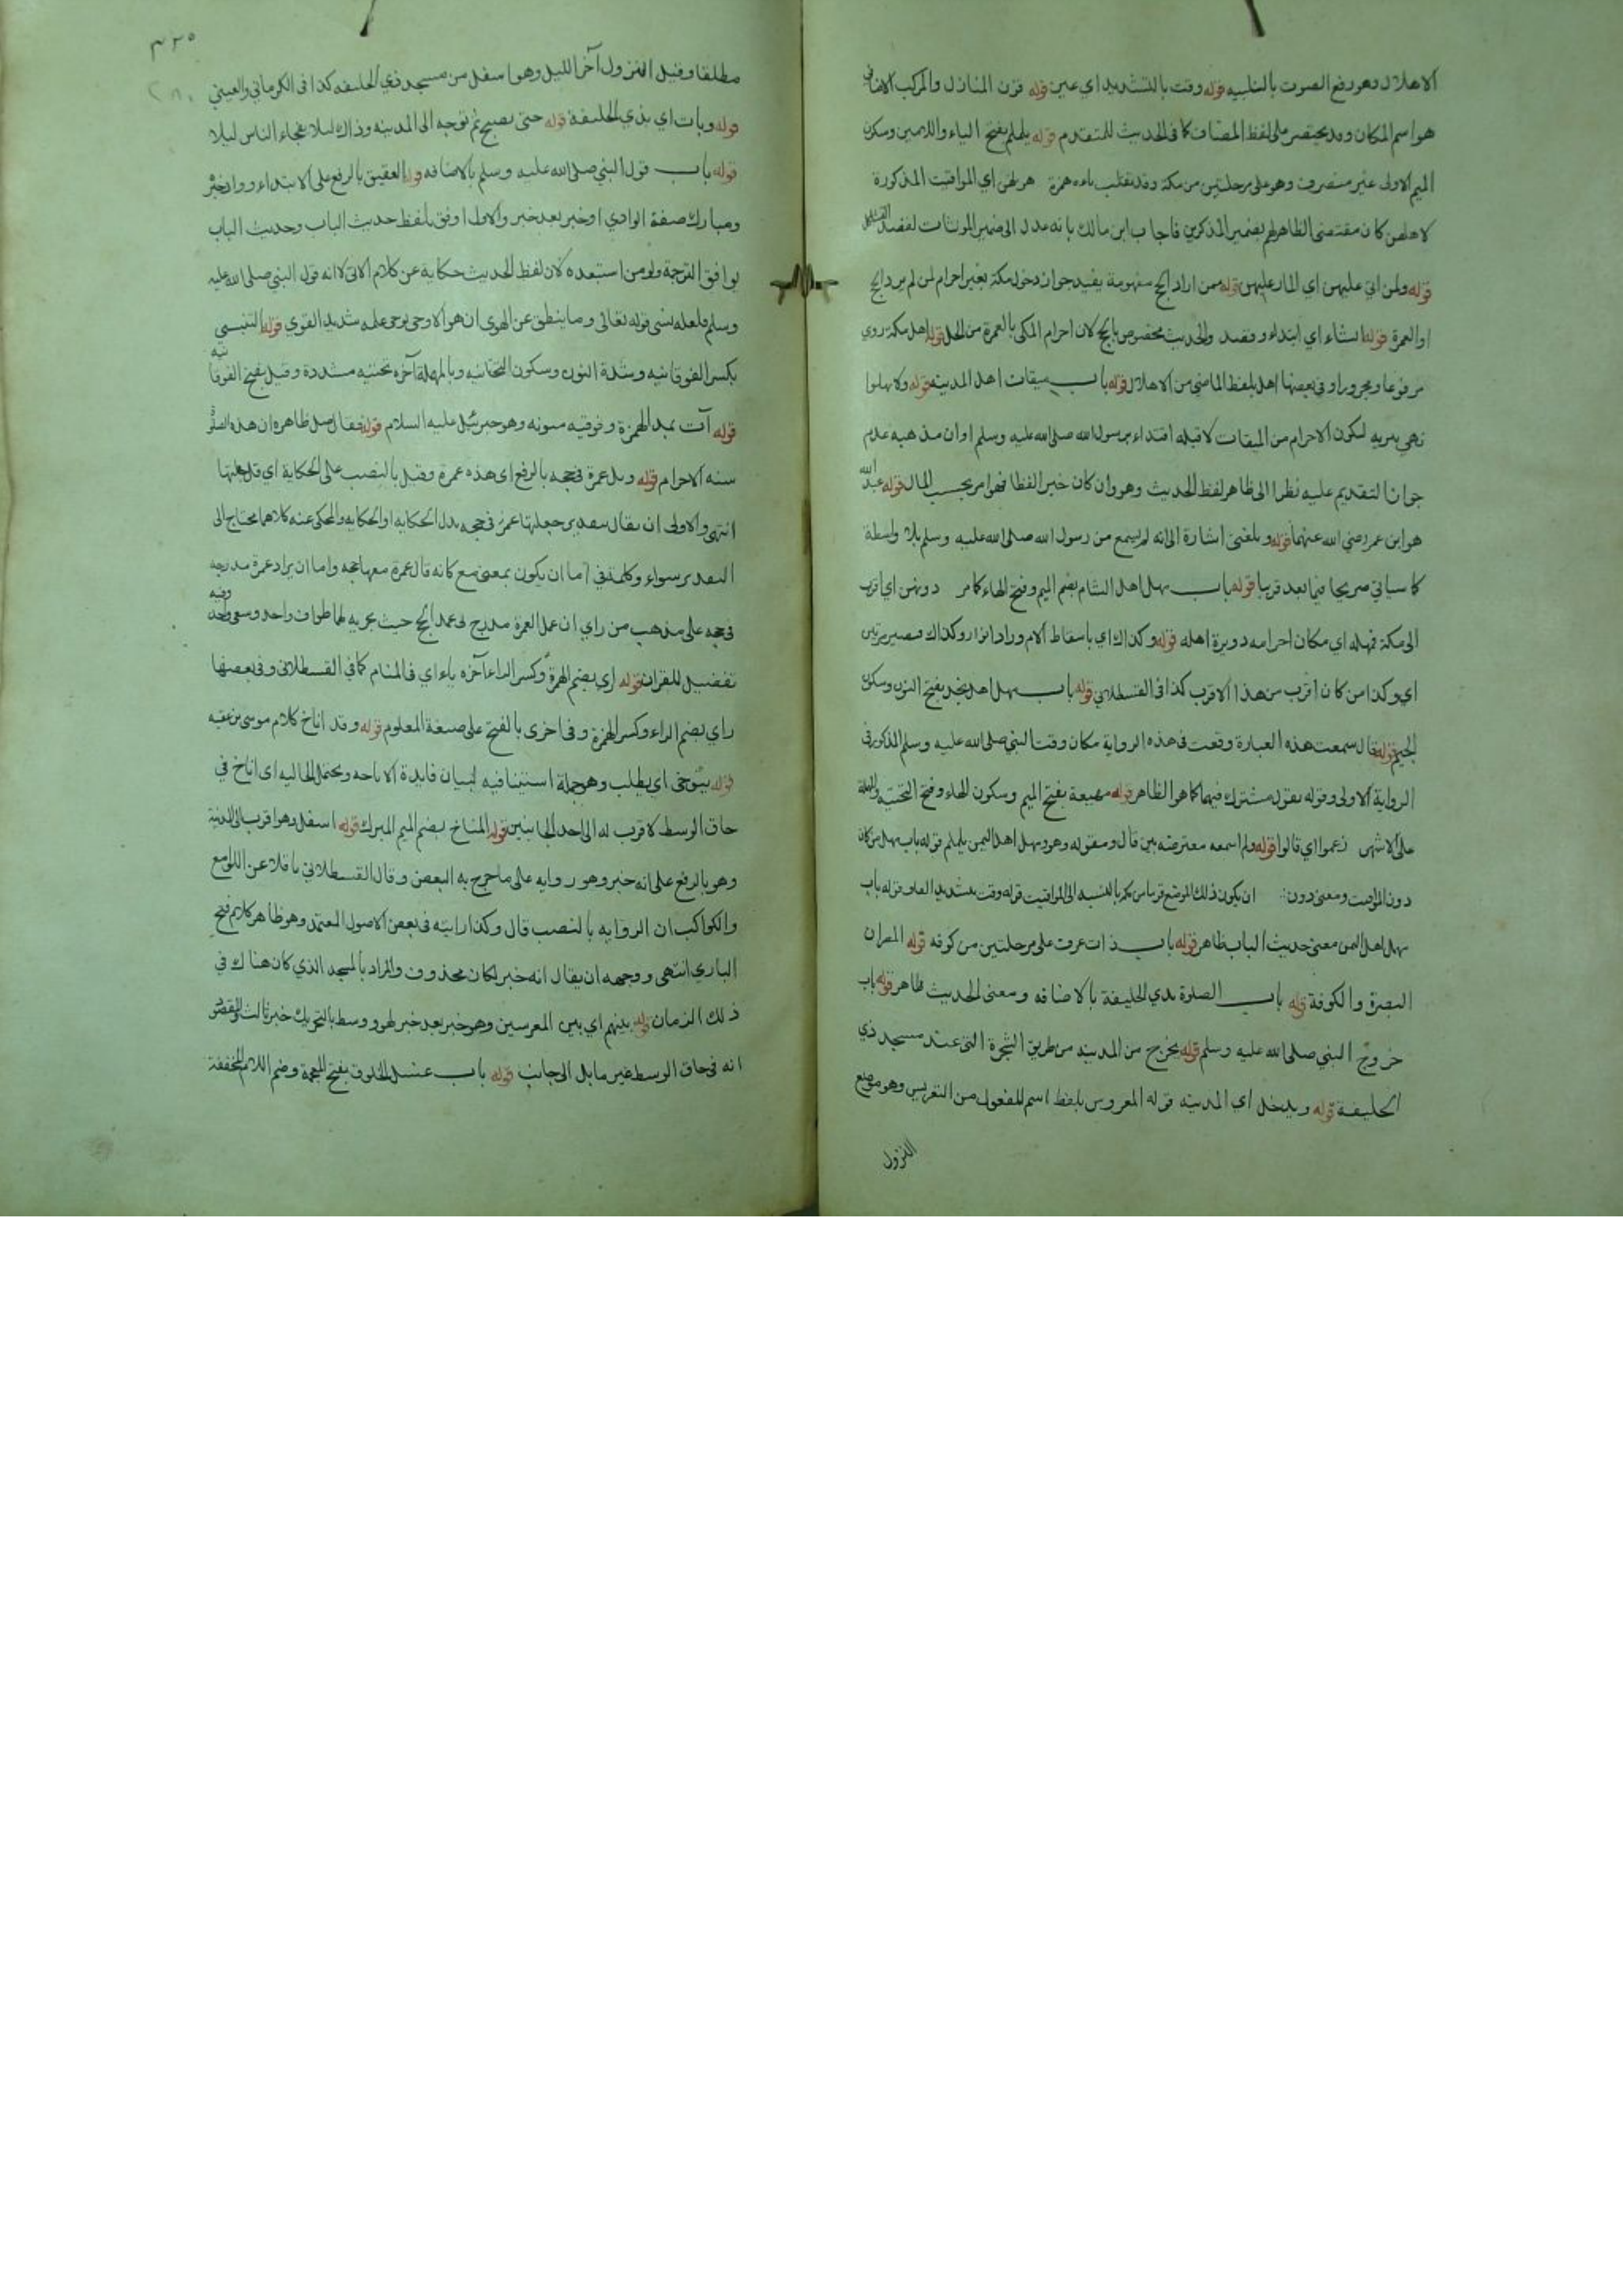 الاهلال وهو رفع الصوت بالتلبيه قوله وقت بالتشديد اي عين قوله قرن المنازل والمركب الاضافي
هو اسم المكان وقد يختصر على لفظ المضاف كما في الحديث المتقدم قوله يلملم بفتح الياء واللامين وسكون
الميم الاولى غير منصرف وهو على مرحلتين من مكة وقد تقلب ياءه همزة هن لهن اي المواقيت المذكورة
لاهلهن كان مقتضى الظاهر لهم بضمير المذكرين فاجاب ابن مالك بانه عدل الى ضمير المونثات لقصد التشاكل
قوله ولمن اتى عليهن اي المار عليهن قوله ممن اراد الحج مفهومة يفيد جواز دخول مكة بغير احرام لمن لم يرد الحج
او العمرة قوله انشاء اي ابتداء وقصد والحديث مخصوص بالحج لان احرام المكي بالعمرة من الحل قوله اهل مكة روي
مرفوعا ومجرورا وفي بعضها اهل بلفظ الماضي من الاهلال قوله باب ميقات اهل المدينه قوله ولا يهلوا
نهي يريد لكون الاحرام من الميقات لا قبله اقتداء برسول الله صلى الله عليه وسلم او ان مذهبه عدم
جواز التقديم عليه نظرا الى ظاهر لفظ الحديث وهو وان كان خبرا لفظا فهو امر بحسب المال قوله عبد الله
هو ابن عمر رضي الله عنهما قوله وبلغني اشارة الى انه لم يسمع من رسول الله صلى الله عليه وسلم بلا واسطة
كما سياتي صريحا فيما بعد قريبا قوله باب مهل اهل الشام بضم الميم وفتح الهاء كما مر دونهن اي اقرب
الى مكة فمهله اي مكان احرامه دويرة اهله قوله وكذاك اي باسقاط الام و وكذاك فيصير مرتين
اي وكذا من كان اقرب من هذا الاقرب كذا في القسطلاني قوله باب مهل اهل نجد بفتح النون وسكون
الجيم قوله قال سمعت هذه العبارة وقعت في هذه الرواية مكان وقت النبي صلى الله عليه وسلم المذكور في
الرواية الاولى وقوله يقول مشترك فيهما كما هو الظاهر قوله مهيعة بفتح الميم وسكون الهاء وفتح التحتية والمهملة
على الاشهر زعموا اي قالوا قوله ولم اسمعه معترضه بين قال ومقوله وهو ومهل اهل اليمن يلملم قوله باب مهل من كان
دون المواقيت ومعنى دون ان يكون ذلك الموضع قريبا من مكة بالنسبه الى المواقيت قوله وقت بتشديد القاف قوله باب
مهل اهل اليمن معنى حديث الباب ظاهر قوله باب ذات عرق على مرحلتين من كوفه قوله المصران
البصرة والكوفة قوله باب الصلوة بذي الحليفة بالاضافه ومعنى الحديث ظاهر قوله باب
خروج النبي صلى الله عليه وسلم قوله يخرج من المدينه من طريق الشجرة التي عند مسجد ذي
الحليفة قوله ويدخل اي المدينه قوله المعرس بلفظ اسم المفعول من التعريس وهو موضع
النزول
٣٢٥
مطلقا وقيل النزول آخر الليل وهو اسفل من مسجد ذي الحليفه كذا في الكرماني والعيني
قوله وبات اي بذي الحليفة قوله حتى يصبح ثم توجه الى المدينه وذاك لئلا يفجاء الناس ليلا
قوله باب قول النبي صلى الله عليه وسلم بالاضافه قوله العقيق بالرفع على الابتداء وواد خبر
ومبارك صفة الوادي او خبر بعد خبر والاول اوفق بلفظ حديث الباب وحديث الباب
يوافق الترجمة ومن استبعده لان لفظ الحديث حكاية عن كلام الاتي لا انه قول النبي صلى الله عليه
وسلم فلعله نسي قوله تعالى وما ينطق عن الهوى ان هو الا وحي يوحى علمه شديد القوي قوله التنيسي
بكسر الفوقانيه وشدة النون وسكون التحتانيه وبالمهملة آخره تحتيه مشددة وقيل بفتح الفوقانيه
قوله آت بمد الهمزة وفوقيه منونه وهو جبرئيل عليه السلام قوله فقال صل ظاهره ان هذه الصلوة
سنه الاحرام قوله وقل عمرة في حجه بالرفع اي هذه عمرة وقيل بالنصب على الحكاية اي قل جعلتها
انتهى والاولى ان يقال بتقدير جعلتها عمرة في حجه بدل الحكايه او الحكايه والمحكي عنه كلاهما محتاج الى
التقدير سواء وكلمة في اما ان يكون بمعنى مع كانه قال عمرة معها حجه واما ان يراد عمرة مدرجه
في حجه على مذهب من راي ان عمل العمرة مدرج في عمل الحج حيث يجزيه لهما طواف واحد وسعي واحد وفيه
تفضيل للقران قوله اري بضم الهمزة وكسر الراء آخره ياء اي في المنام كما في القسطلاني وفي بعضها
راي بضم الراء وكسر الهمزة وفي اخرى بالفتح على صيغة المعلوم قوله وقد اناخ كلام موسى بن عقبه
قوله يتوخى اي يطلب وهو جملة استينافيه لبيان فايدة الاناخه ويحتمل الحاليه اي اناخ في
حاق الوسط لا قرب له الى احد الجانبين قوله المناخ بضم الميم المبرك قوله اسفل وهو اقرب الى المدينة
وهو بالرفع على انه خبر وهو روايه على ما خرج به البعض وقال القسطلاني ناقلا عن اللامع
والكواكب ان الروايه بالنصب قال وكذا رايته في بعض الاصول المعتمد وهو ظاهر كلام فتح
الباري انتهى ووجهه ان يقال انه خبر لكان محذوف والمراد بالمسجد الذي كان هناك في
ذلك الزمان قوله بينهم اي بين المعرسين وهو خبر بعد خبر لهو ووسط بالتحريك خبر ثالث والمقصود
انه في حاق الوسط غير مايل الى جانب قوله باب غسل الخلوق بفتح المعجمة وضم اللام المخففة